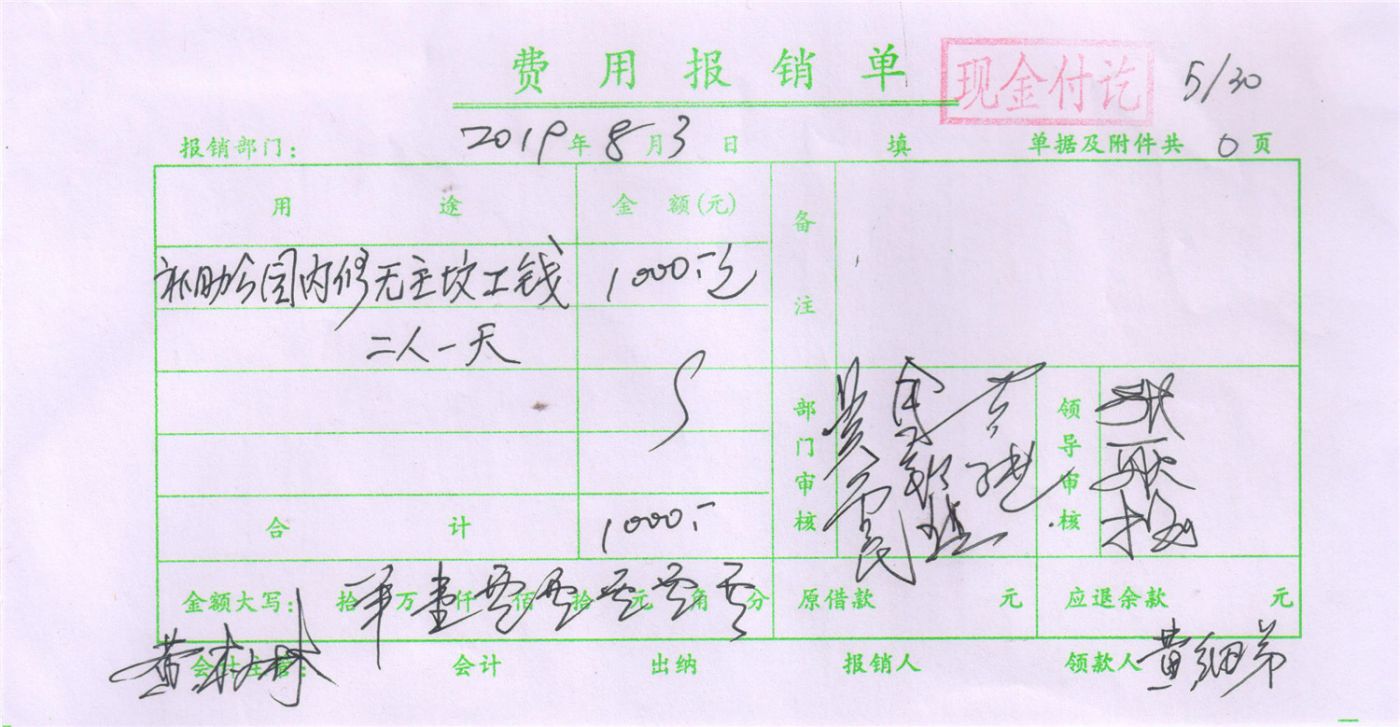 费用报销单 现金付讫 5/30
报销部门： 2019年8月3日 填 单据及附件共 0 页
用途 金额(元) 备注
补助公园内修无主坟工钱 1000.-元
二人一天
部门审核 领导审核
合计 1000.-
金额大写： 拾 万壹仟零佰零拾零元零角零分 原借款 元 应退余款 元
会计主管： 会计 出纳 报销人 领款人 黄细弟